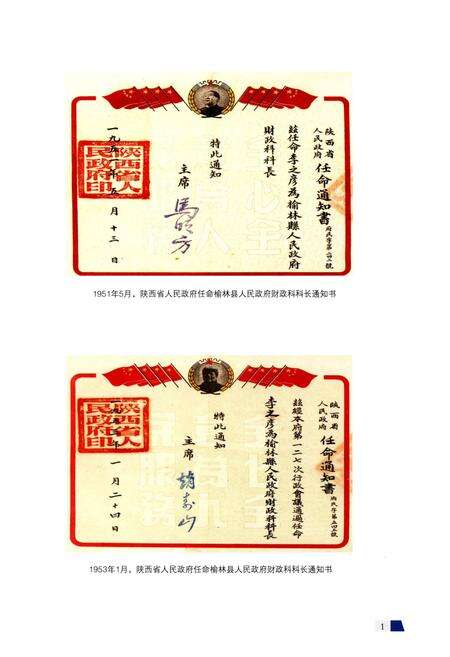 陕西省
人民政府
任命通知书
兹任命李之彦为榆林县人民政府
财政科科长
特此通知
主席
馬明方
一九五一年五月十三日
陕西省人
民政府印
1951年5月，陕西省人民政府任命榆林县人民政府财政科科长通知书
陕西省
人民政府
任命通知書
兹經本府第一二七次行政會議通過任命
李之彦為榆林縣人民政府財政科科長
特此通知
主席
趙壽山
一月二十四日
陕西省人
民政府印
1953年1月，陕西省人民政府任命榆林县人民政府财政科科长通知书
1